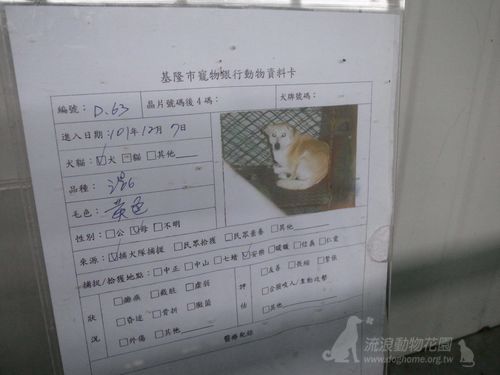 基隆市寵物銀行動物資料卡
編號：D.63 晶片號碼後4碼： 犬牌號碼：
進入日期：101年12月7日
犬貓：☑犬 □貓 □其他
品種：
毛色：黃色
性別：□公 ☑母 □不明
來源：☑捕犬隊捕捉 □民眾拾獲 □民眾棄養 □其他
捕捉/拾獲地點：□中正 □中山 □七堵 ☑安樂 □暖暖 □信義 □仁愛
狀況 □癱瘓 □截肢 □虛弱
□昏迷 □骨折 □黴菌
□外傷 □其他
評估 □友善 □畏縮 □緊張
□會咬人/主動攻擊
□其他
醫療紀錄
流浪動物花園
www.doghome.org.tw